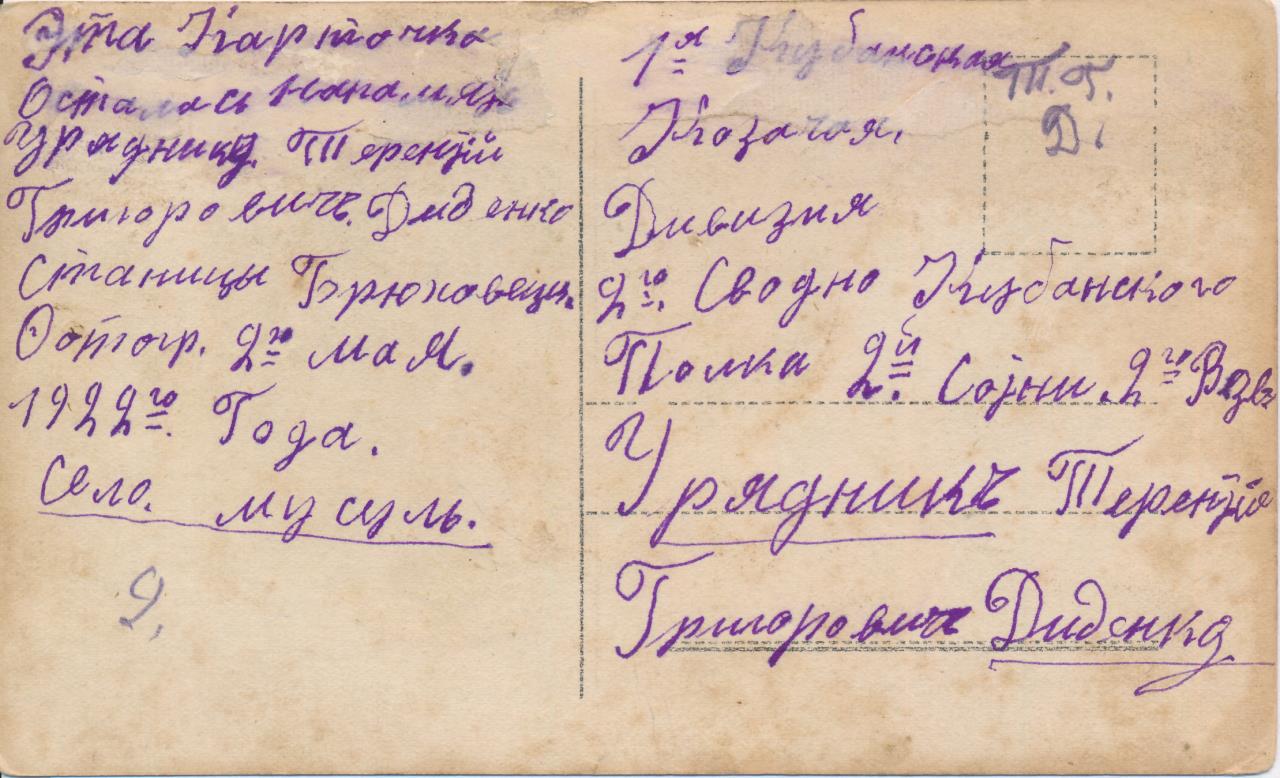 Эта Карточка
Осталась напамять
Урядника. Терентий
Григоровичъ. Диденко
Станицы Брюховецк.
Фотогр. 2го мая.
1922го. Года.
Село. мусуль.
Я.
1я Кубанская
Козачая.
Дивизия
2го. Сводно Кубанского
Полка 2й. Сотни. 2го Взв
Урядникъ Терентий
Григорович Диденко
Т. Г.
Д.